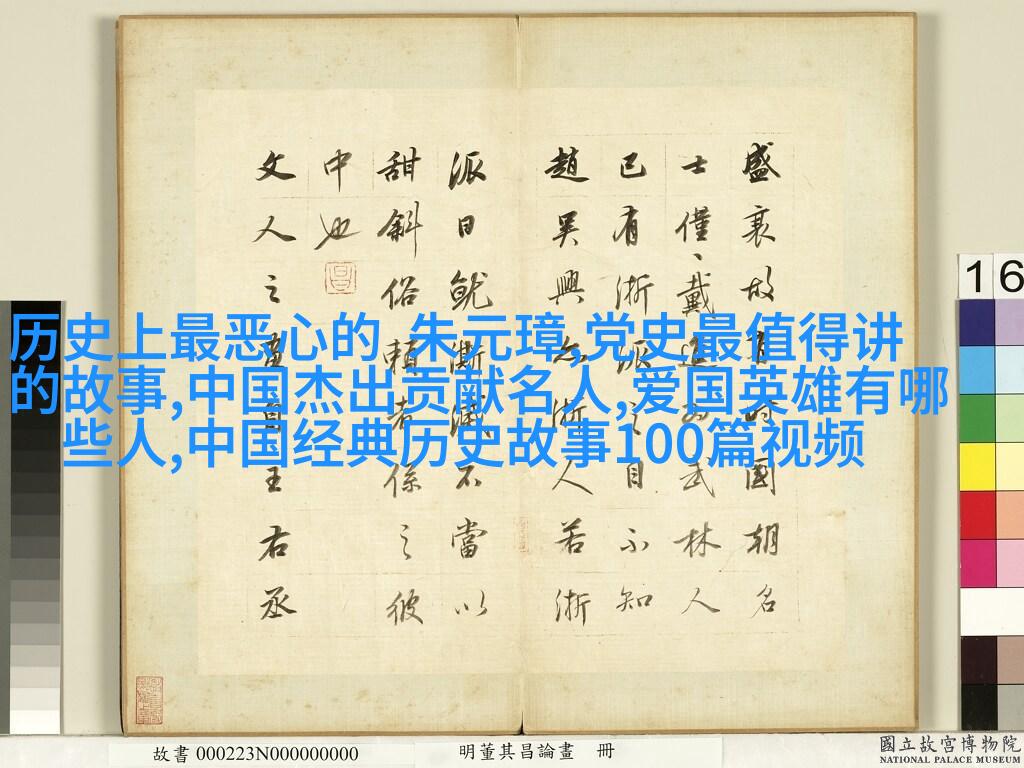 历史上最恶心的,朱元璋,党史最值得讲
的故事,中国杰出贡献名人,爱国英雄有哪
些人,中国经典历史故事100篇视频
盛衰故有時國朝名
士僅戴進為武林人
已有浙派之目不知
趙吳興亦浙人若浙
派日就澌滅不當以
甜斜俗賴者係之彼
中也
文人之畫自王右丞
16
故書 000223N000000000
明董其昌論畫 冊
國立故宮博物院
NATIONAL PALACE MUSEUM